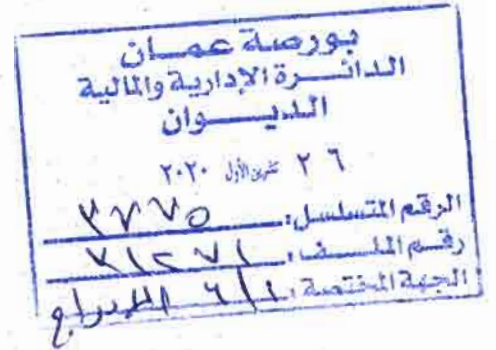 بورصة عمان
الدائرة الإدارية والمالية
الديوان
٢٦ تشرين الأول ٢٠٢٠
الرقم المتسلسل: ٣٧٧٥
رقم الملف: ٣١٢٧١
الجهة المختصة: